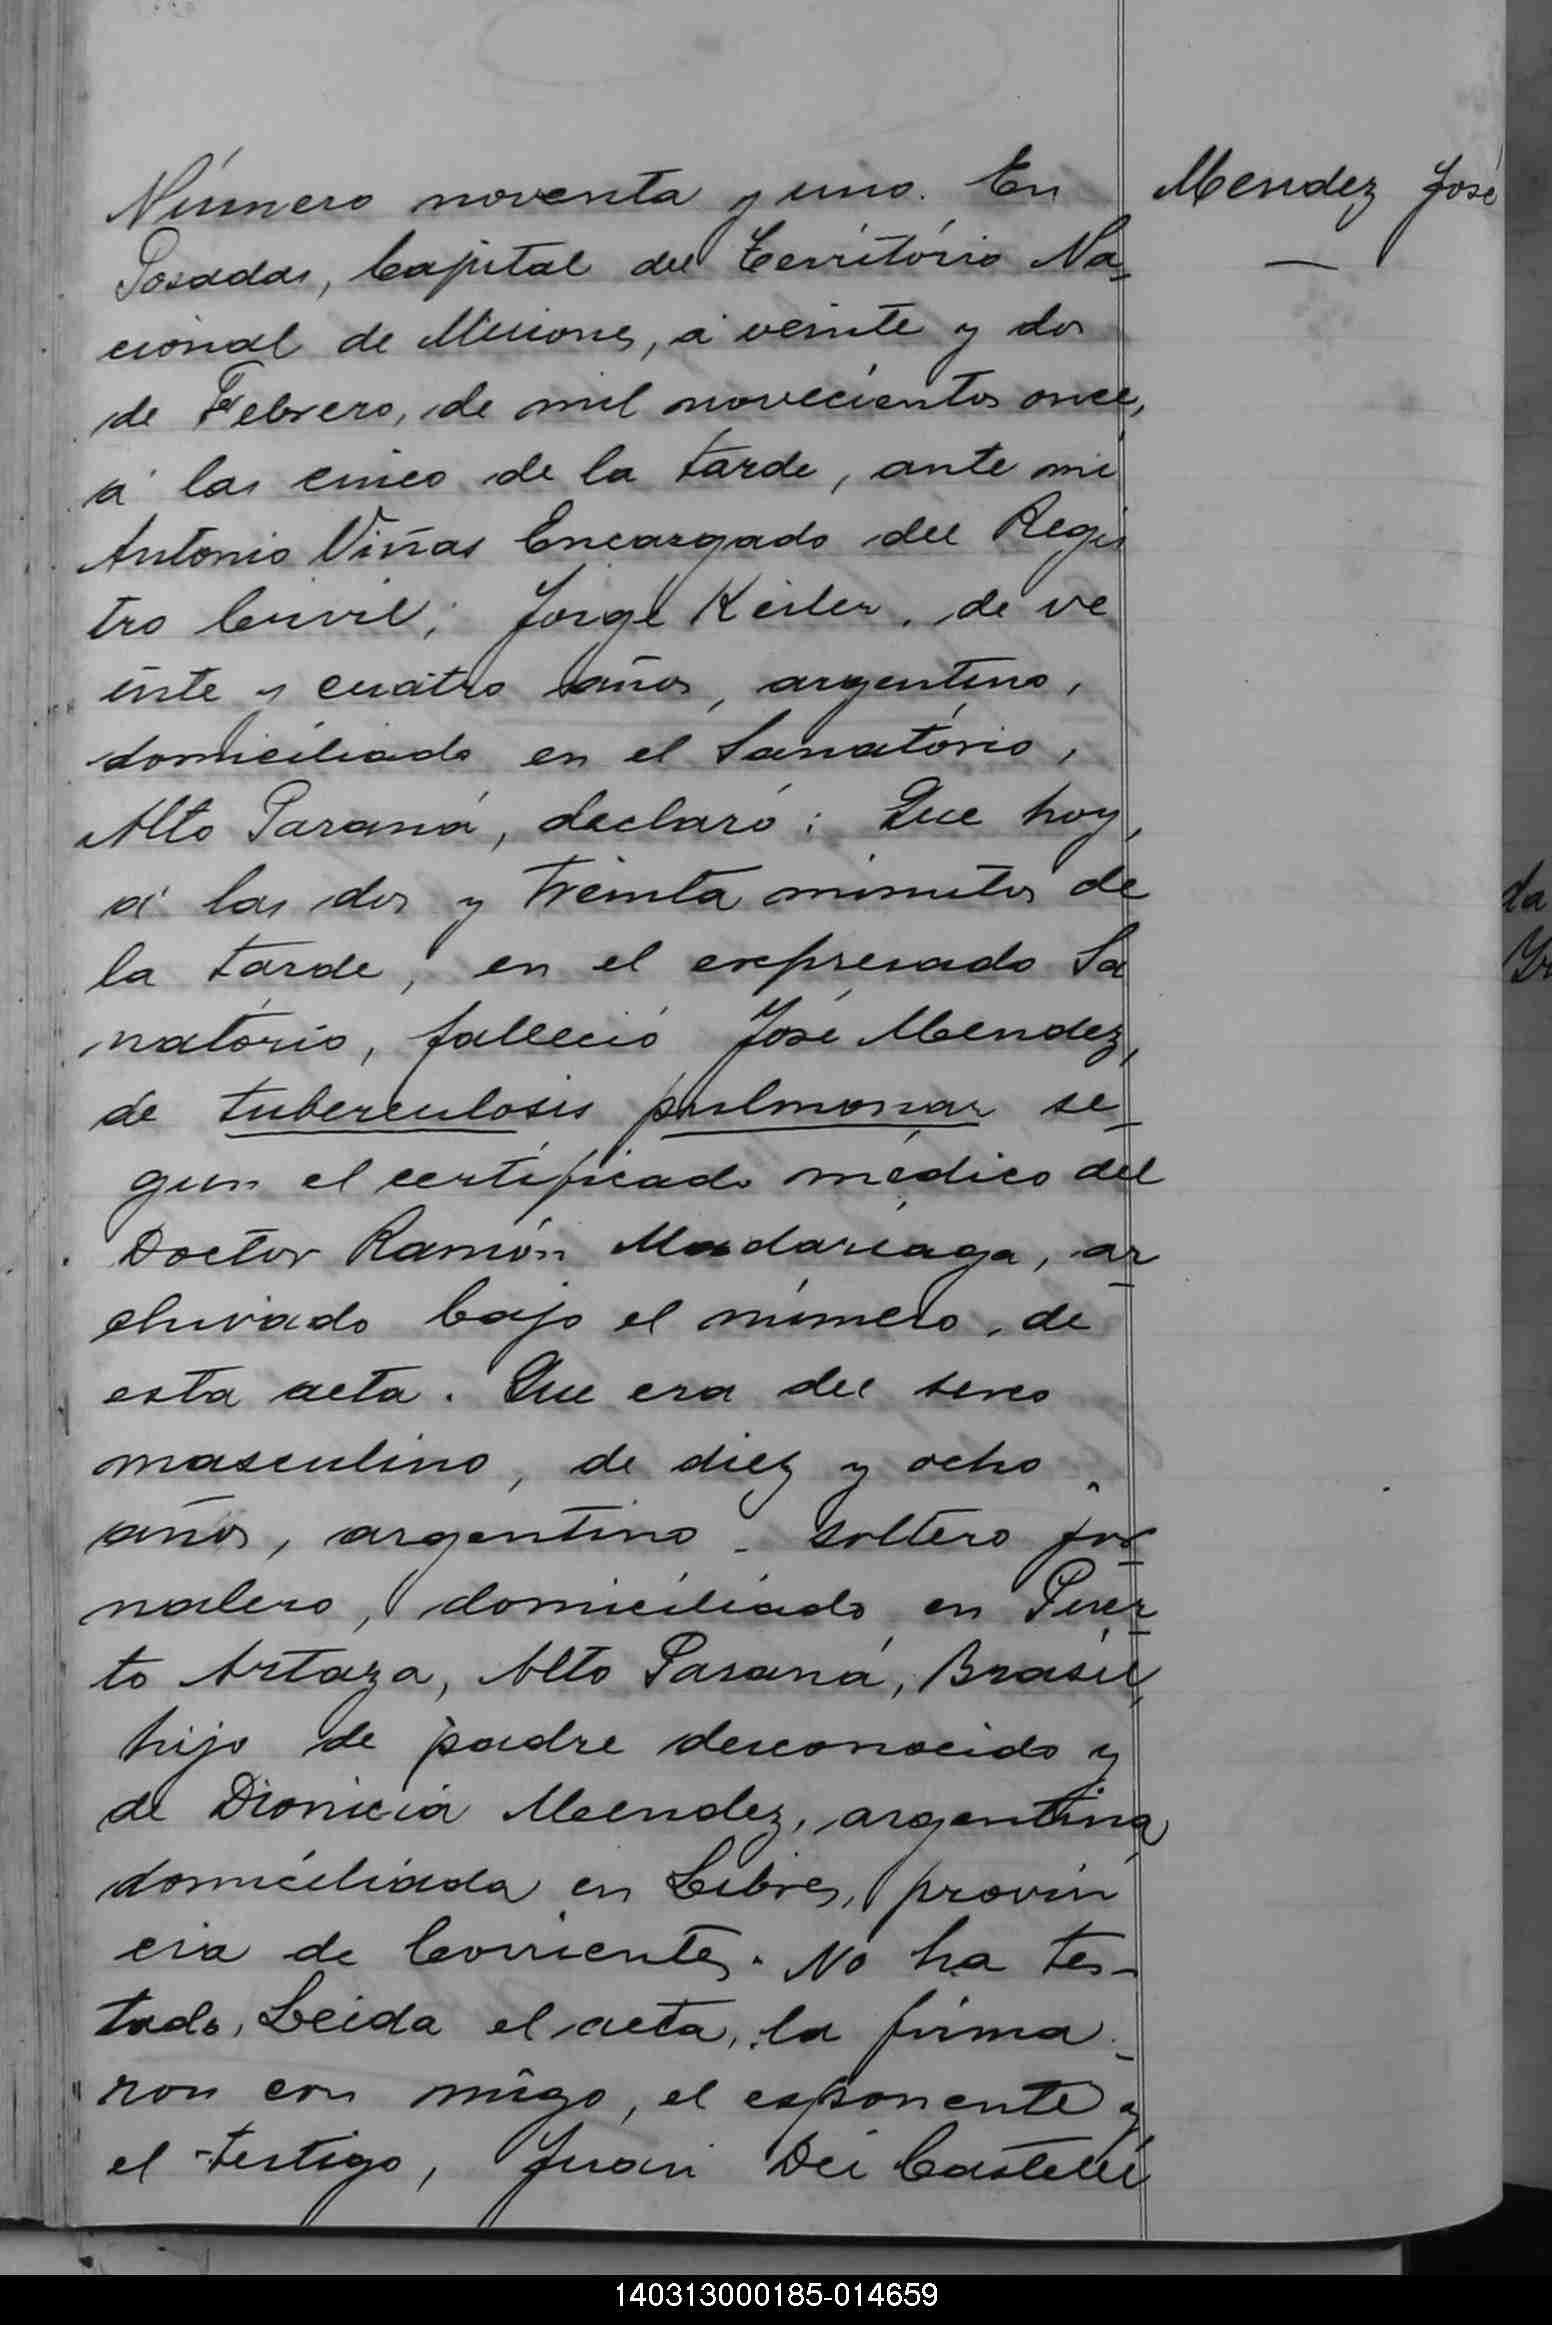 Número noventa y uno. En
Mendez José
Posadas, Capital del Território Na-
cional de Misiones, á veinte y dos
de Febrero, de mil novecientos once,
á las cinco de la tarde, ante mi
Antonio Viñas Encargado del Regis
tro Civil; Jorge Keiler, de ve
inte y cuatro años, argentino,
domiciliado en el Sanatório,
Alto Paraná, declaró: Que hoy,
á las dos y treinta minutos de
la tarde, en el expresado Sa
natório, falleció José Mendez,
de tuberculosis pulmonar se-
gun el certificado médico del
Doctor Ramón Madariaga, ar-
chivado bajo el número, de
esta acta. Que era del sexo
masculino, de diez y ocho
años, argentino - soltero jor-
nalero, domiciliado en Puer-
to Artaza, Alto Paraná, Brasil,
hijo de padre desconocido y
de Dionicia Mendez, argentina,
domiciliada en Libres, provin
cia de Corrientes. No ha tes-
tado, Leida el acta, la firma-
ron con migo, el esponente y
el testigo, Juan Dei Castelli
da
140313000185-014659